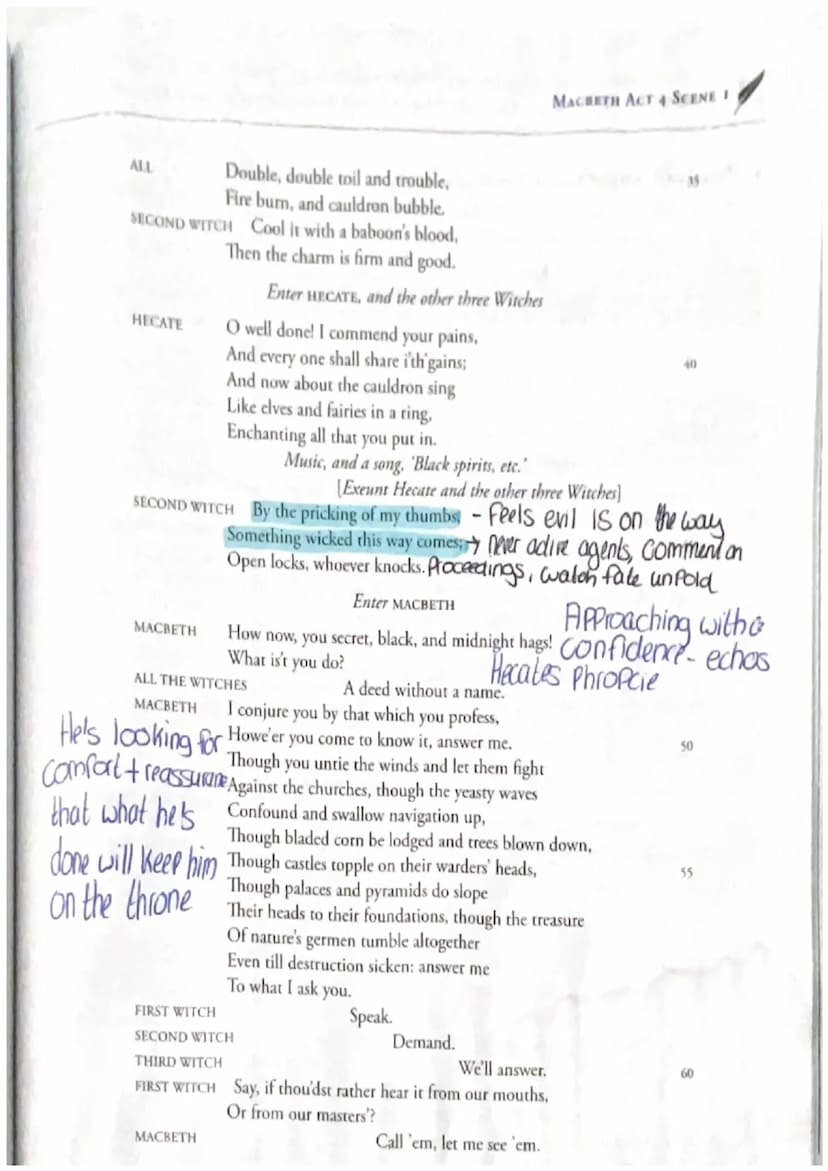 MACBETH ACT 4 SCENE 1
ALL Double, double toil and trouble, 35
Fire burn, and cauldron bubble.
SECOND WITCH Cool it with a baboon's blood,
Then the charm is firm and good.
Enter HECATE, and the other three Witches
HECATE O well done! I commend your pains,
And every one shall share i'th'gains; 40
And now about the cauldron sing
Like elves and fairies in a ring,
Enchanting all that you put in.
Music, and a song, 'Black spirits, etc.'
[Exeunt Hecate and the other three Witches]
SECOND WITCH By the pricking of my thumbs, - feels evil is on the way
Something wicked this way comes; → never active agents, comment on
Open locks, whoever knocks. proceedings, watch fate unfold
Enter MACBETH
Approaching with a
MACBETH How now, you secret, black, and midnight hags! confidence - echos
What is't you do? Hecates phropcie
ALL THE WITCHES A deed without a name.
MACBETH I conjure you by that which you profess,
He's looking for Howe'er you come to know it, answer me. 50
Though you untie the winds and let them fight
comfort + reassurane Against the churches, though the yeasty waves
that what he's Confound and swallow navigation up,
Though bladed corn be lodged and trees blown down,
done will keep him Though castles topple on their warders' heads, 55
Though palaces and pyramids do slope
on the throne Their heads to their foundations, though the treasure
Of nature's germen tumble altogether
Even till destruction sicken: answer me
To what I ask you.
FIRST WITCH Speak.
SECOND WITCH Demand.
THIRD WITCH We'll answer. 60
FIRST WITCH Say, if thou'dst rather hear it from our mouths,
Or from our masters'?
MACBETH Call 'em, let me see 'em.